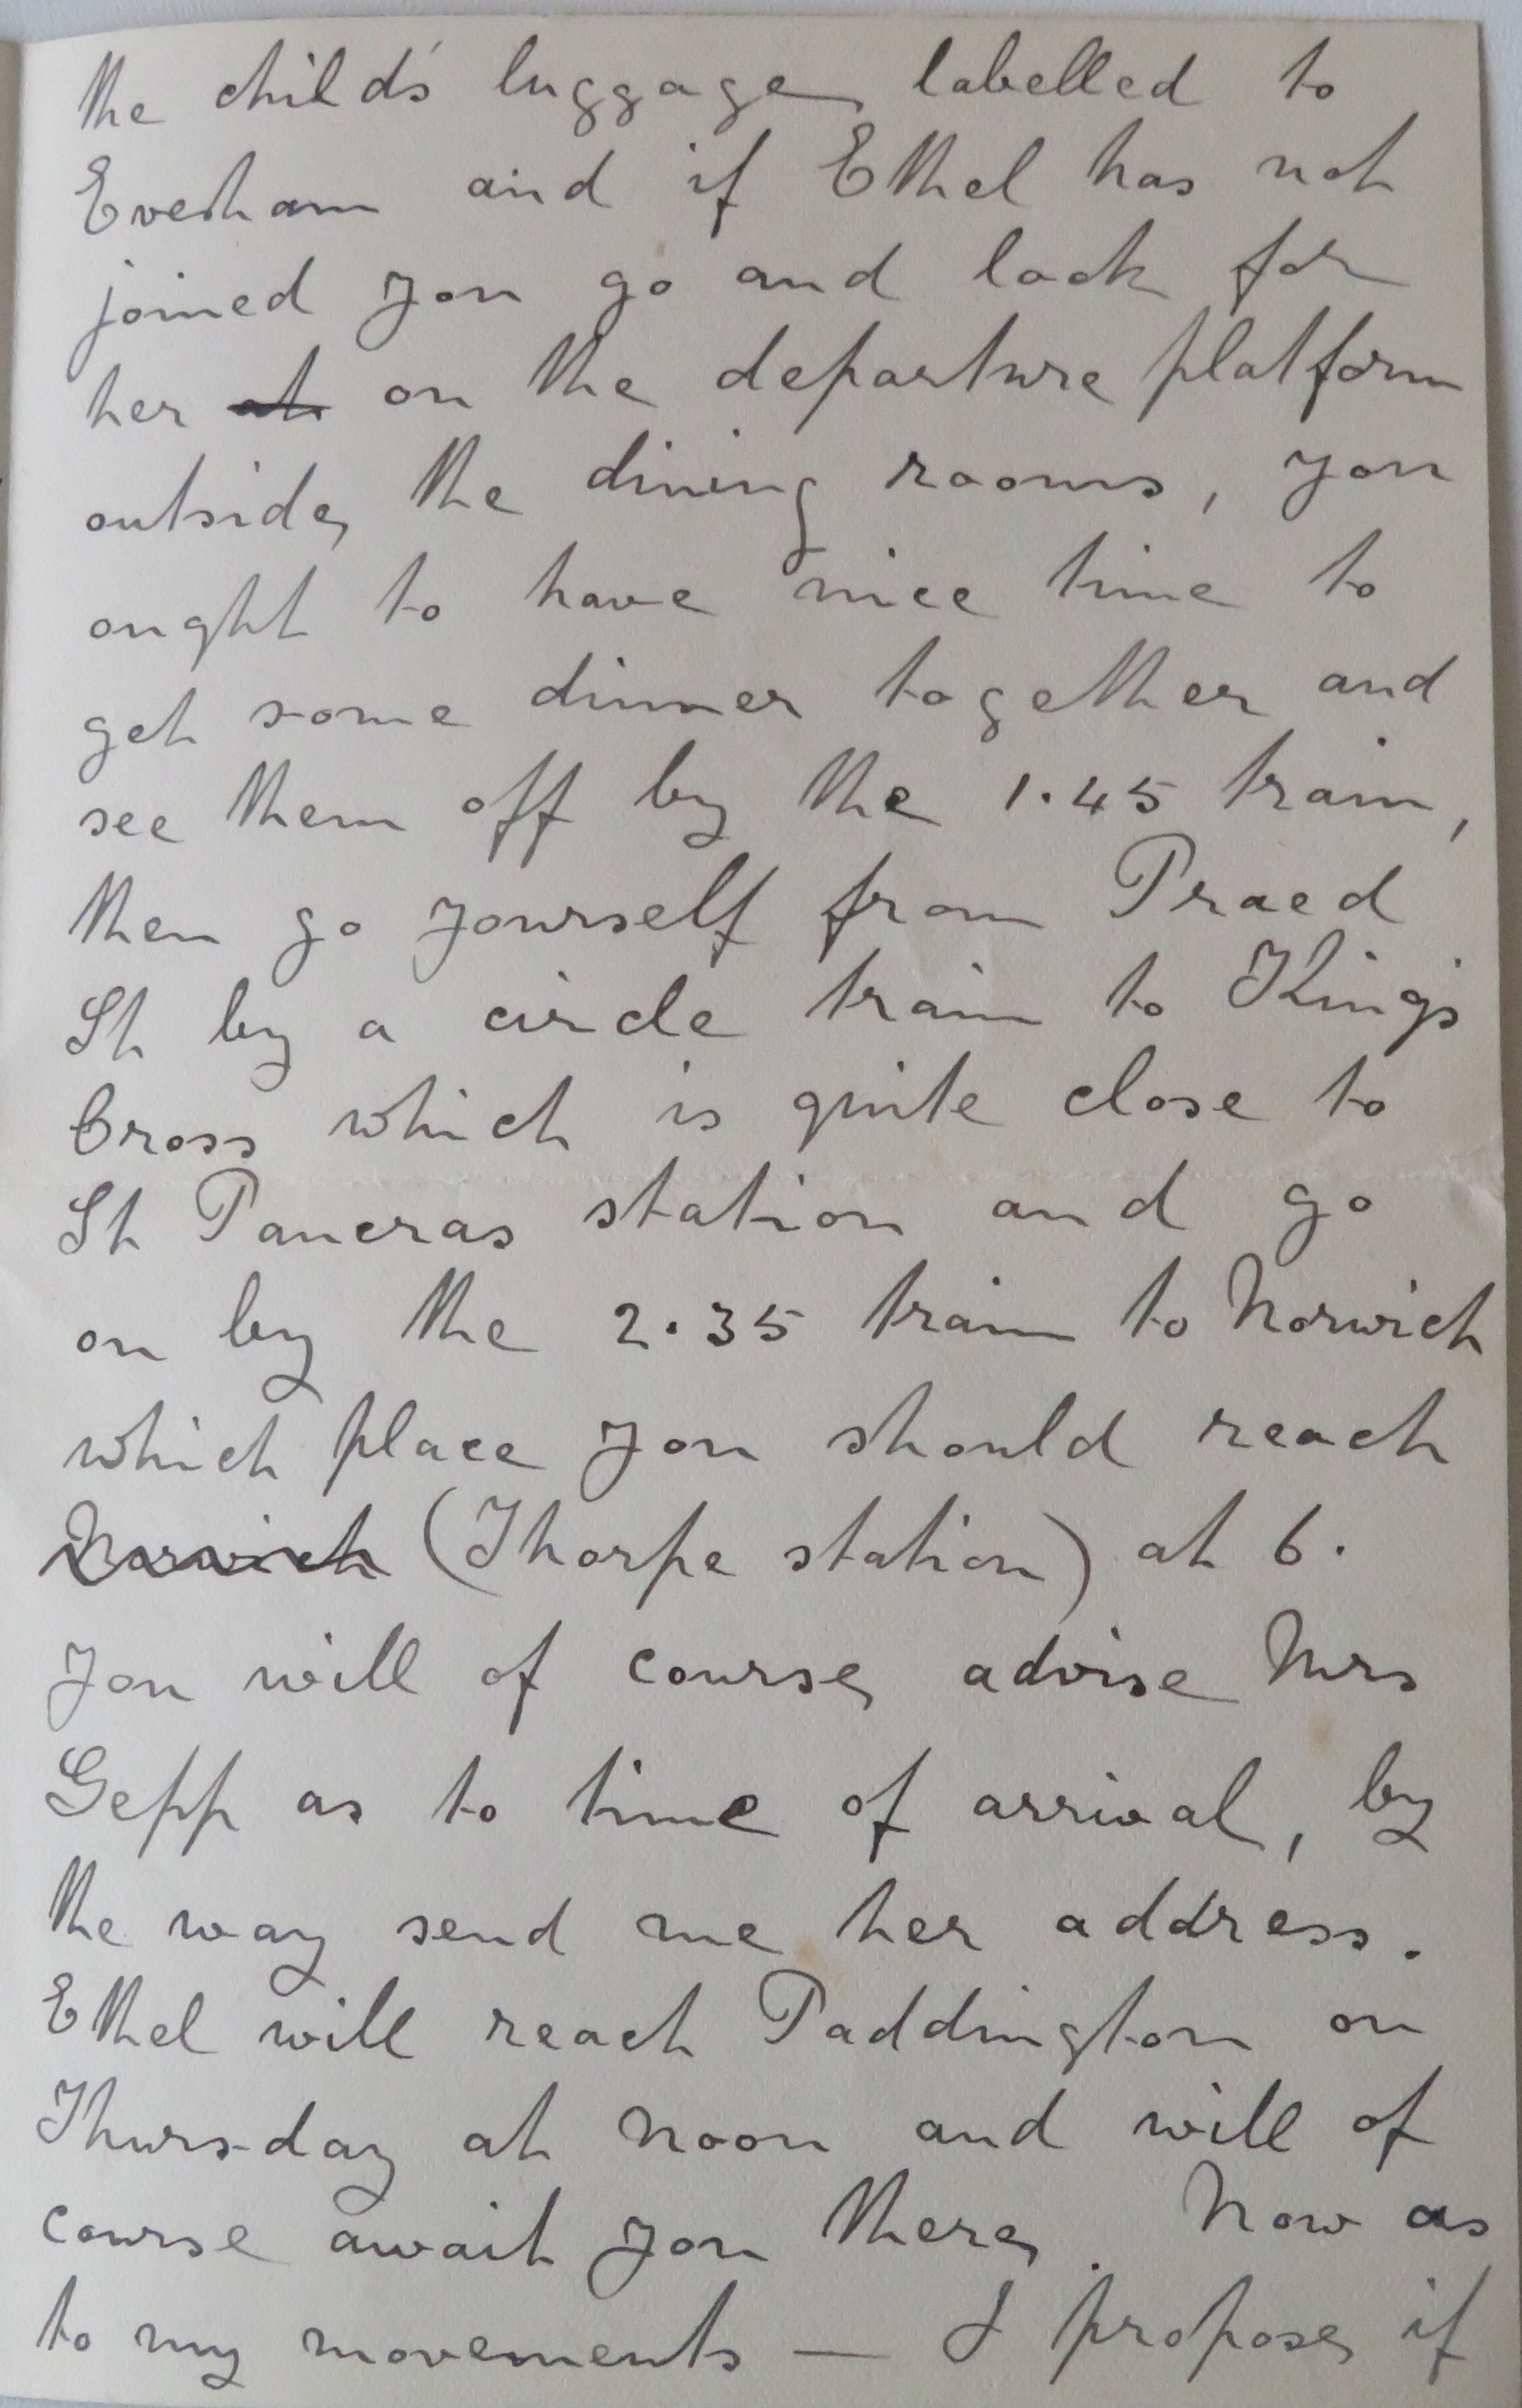 the child's luggage labelled to
Evesham and if Ethel has not
joined you go and look for
her at on the departure platform
outside the dining rooms, you
ought to have nice time to
get some dinner together and
see them off by the 1.45 train,
then go yourself from Praed
St by a circle train to King's
Cross which is quite close to
St Pancras station and go
on by the 2.35 train to Norwich
which place you should reach
Norwich (Thorpe station) at 6.
You will of course advise Mrs
Gepp as to time of arrival, by
the way send me her address.
Ethel will reach Paddington on
Thursday at noon and will of
course await you there. Now as
to my movements — I propose if